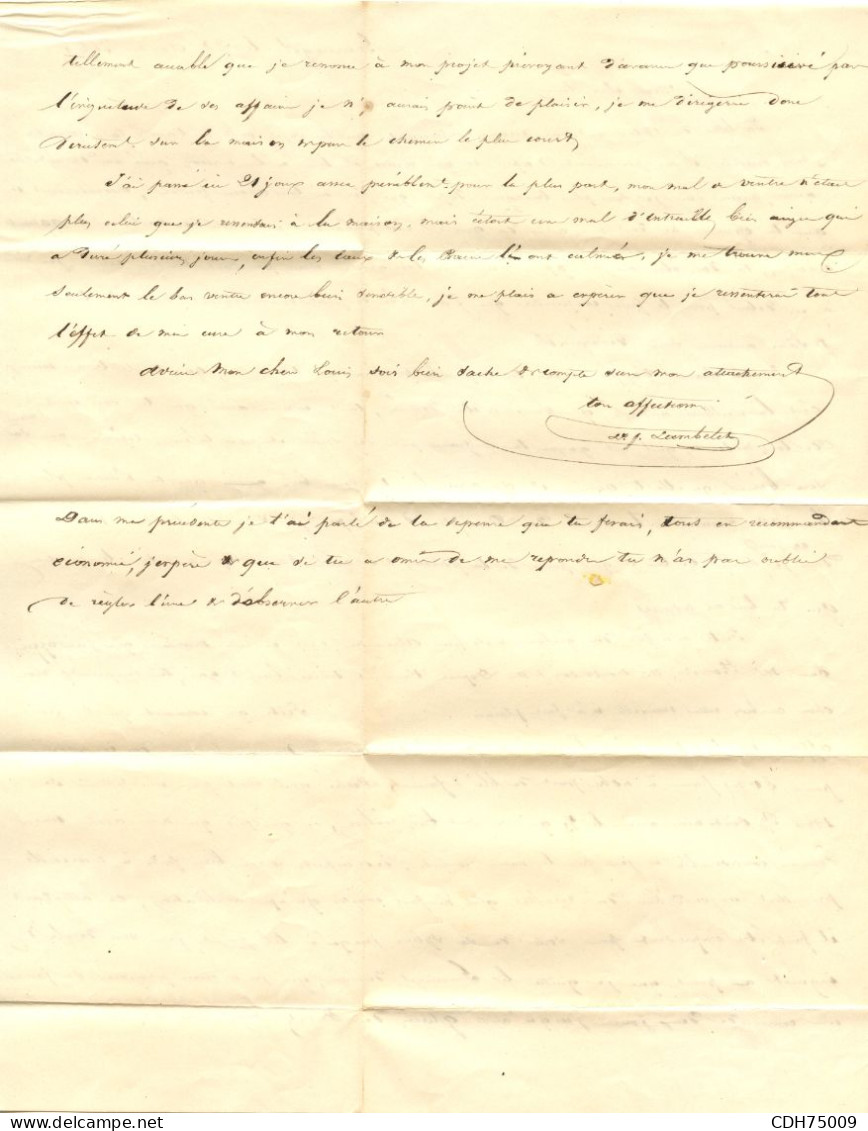 tellement que je renonce à mon projet prévoyant d'avance que poursuivé par
l'inquietude de ses affaire je n'y aurais point de plaisir, je me dirigerai donc
directemt. sur la maison par le chemin le plus court
J'ai passé ici 21 jours assez péniblemt. pour la plus part, mon mal de ventre n'étai
plus celui que je ressentais à la maison, mais c'étoit un mal d'entraille, bien aigu qui
a duré plusieurs jours, enfin les eaux de les ont calmés, je me trouve mieux
seulement le bas ventre encore bien sensible, je me plais a espérer que je ressentirai tout
l'effet de ma cure à mon retour
adieu Mon cher Louis sois bien sache & compte sur mon attachement
ton affectionné
Lambelet
Dans ma précédente je t'ai parlé de la depense que tu ferais, tout en recommandant
économie, j'espère & que si tu a omis de me repondre tu n'as pas oublié
de régler l'une & d'observer l'autre
CDH75009